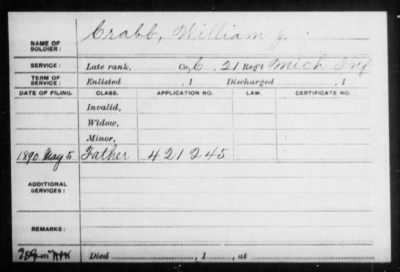 NAME OF SOLDIER: Crabb, William J.
SERVICE: Late rank, Co. C, 21 Reg't Mich Inf
TERM OF SERVICE: Enlisted , 1 Discharged , 1
DATE OF FILING. CLASS. APPLICATION NO. LAW. CERTIFICATE NO.
Invalid,
Widow,
Minor,
1890 May 5 Father 421245
ADDITIONAL SERVICES:
REMARKS:
Died , 1 , at